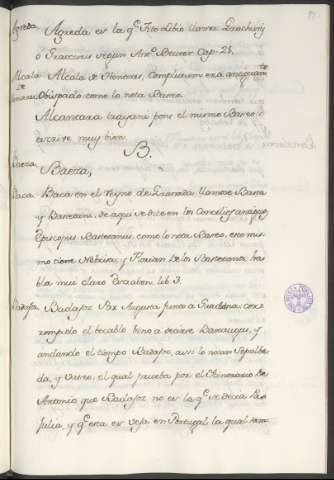 Agreda
Agreda es la q.e Tito Libio llama Grachuris
ò Graccuris segun Ant.o Beuter Cap. 25.
Alcala de Henares
Alcala de Henares, Complutum era antiguam.te
Obispado como lo nota Bareo
Alcantara trayani pone el mismo Bareo ò
escrive muy bien
B.
Baena
Baena,
Baca
Baca en el Reyno de Granada llamose Basta
y Bastetania, de aqui se dice en los Concelios antiguos
Episcopus Bastetanus, como lo nota Bareo, este mis-
mo tiene Nebrixa, y Florian de los Bastetanos ha-
bla muy claro Estrabon, lib. 3.
Badajoz
Badajoz Pax Augusta junto a Guadiana, cor-
rompido el bocablo bino a decirse Baxaugus, y
andando el tiempo Badajoz, assi lo nota Sepulbe-
da, y Vaseo, el qual prueba por el Itinerario de
Antonio que Badajoz no es la q.e se decia Pax
Julia, y q.e esta es veja en Portugal la qual